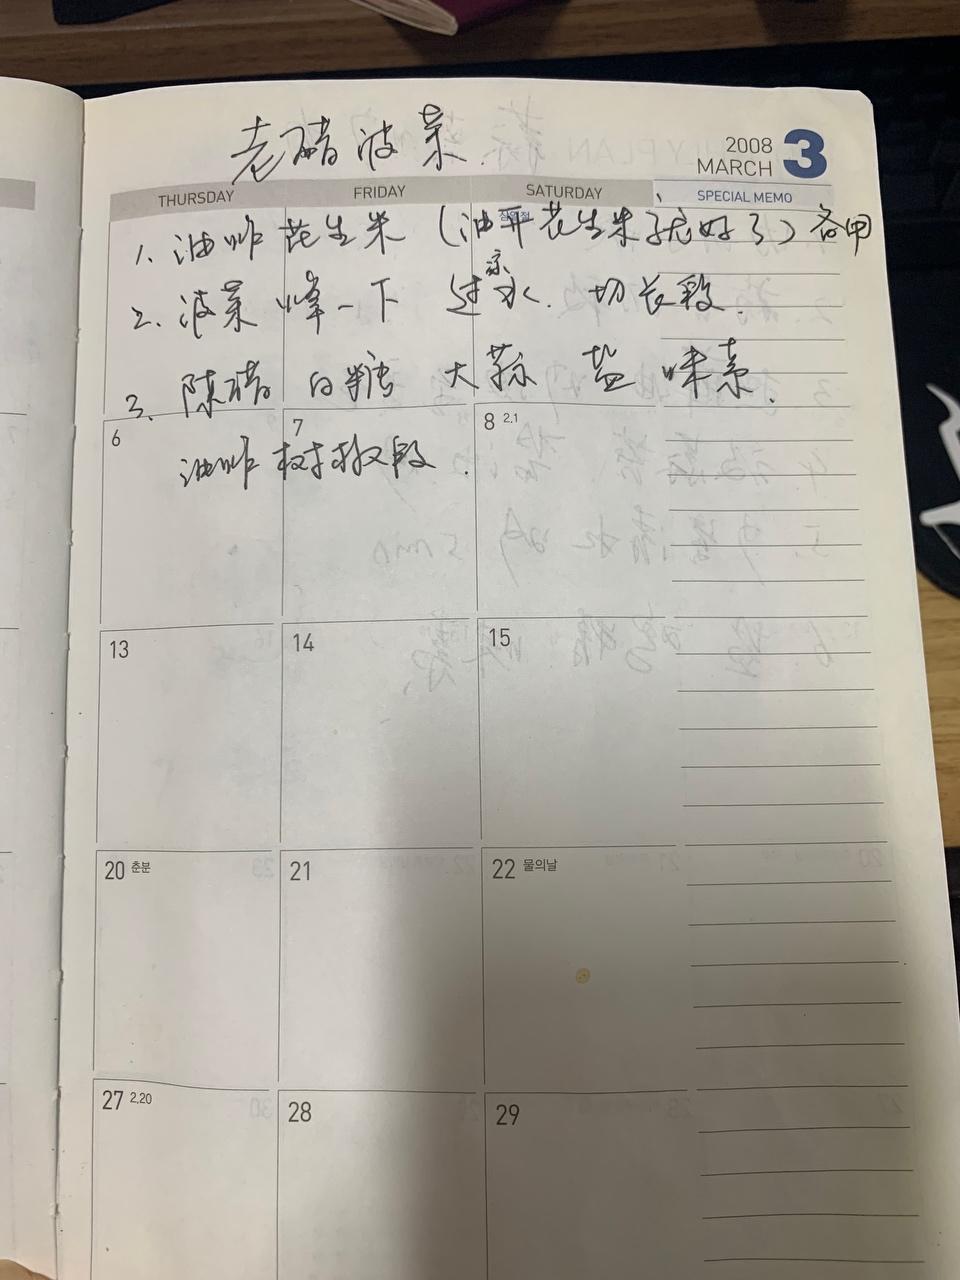 老醋波菜.
2008
MARCH 3
THURSDAY FRIDAY SATURDAY SPECIAL MEMO
1. 油炸花生米 (油开花生米就好了) 备用
2. 波菜焯一下 过凉水. 切长段.
3. 陈醋 白糖 大蒜 盐 味素.
6 7 8 2.1
油炸
13 14 15
20 춘분 21 22 물의날
27 2.20 28 29